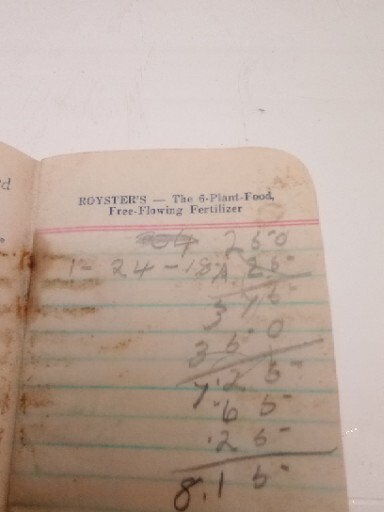 ROYSTER'S — The 6-Plant-Food,
Free-Flowing Fertilizer
250
1-24-18 1.25
3 75
3 50
7.25
.65
.25
8.15